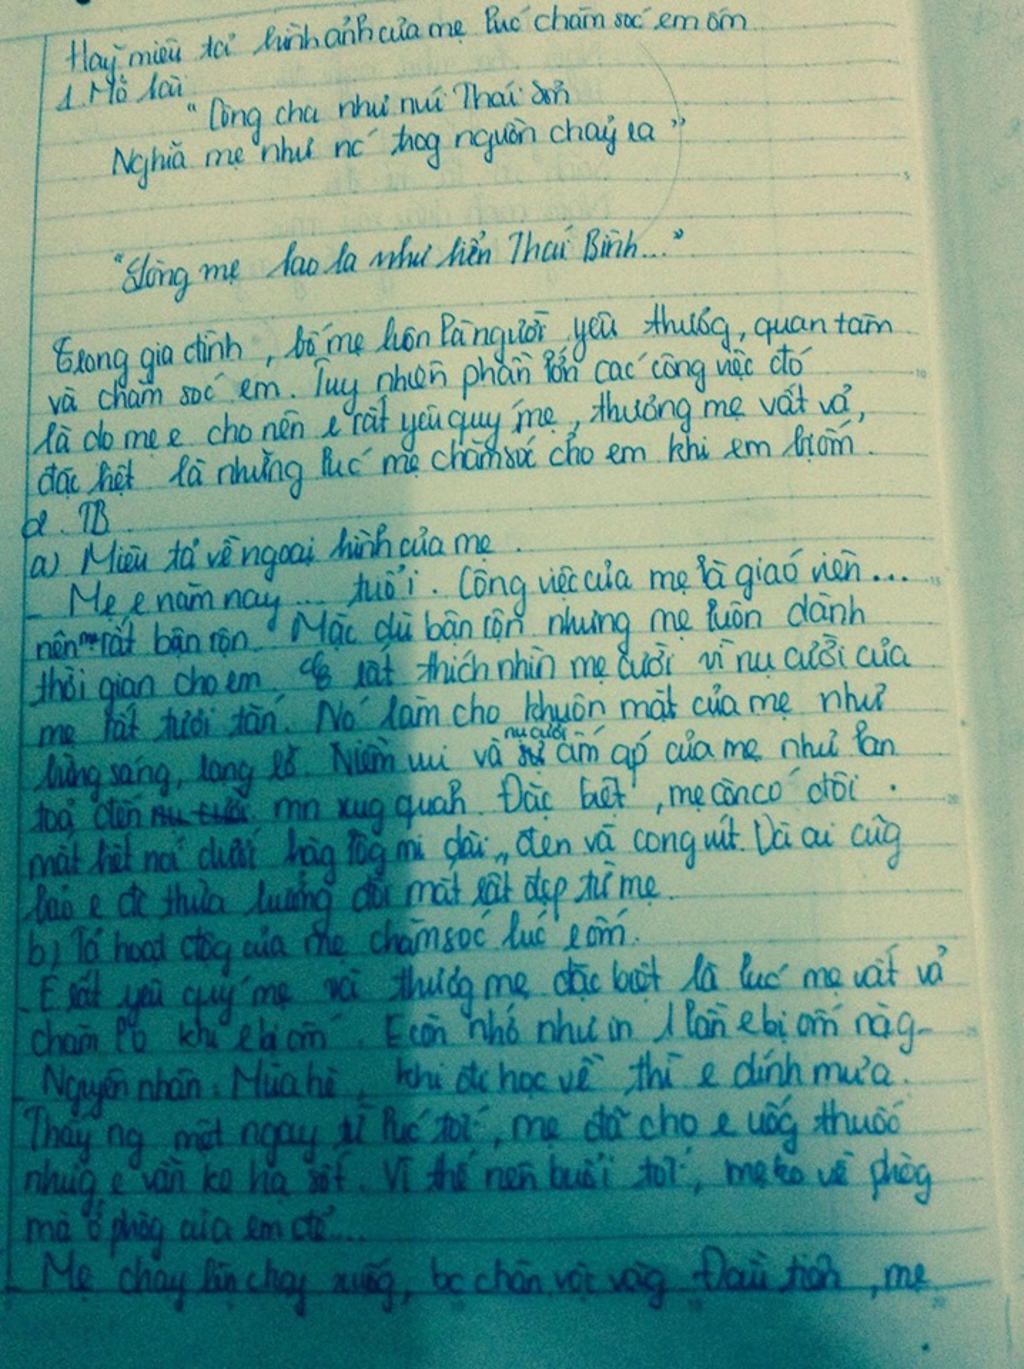 Hãy miêu tả hình ảnh của mẹ lúc chăm sóc em ốm
1. Mở bài
"Công cha như núi Thái Sơn
Nghĩa mẹ như nc' trog nguồn chảy ra"
"Lòng mẹ bao la như biển Thái Bình..."
Trong gia đình, bố mẹ luôn là người yêu thương, quan tâm
và chăm sóc em. Tuy nhiên phần lớn các công việc đó
là do mẹ e cho nên e rất yêu quý mẹ, thương mẹ vất vả,
đặc biệt là những lúc mẹ chăm sóc cho em khi em bị ốm.
2. TB
a) Miêu tả về ngoại hình của mẹ.
- Mẹ e năm nay ... tuổi. Công việc của mẹ là giáo viên...
nên mẹ rất bận rộn. Mặc dù bận rộn nhưng mẹ luôn dành
thời gian cho em. E rất thích nhìn mẹ cười vì nụ cười của
mẹ rất tươi tắn. Nó làm cho khuôn mặt của mẹ như
bừng sáng, rạng rỡ. Niềm vui và nụ cười ấm áp của mẹ như lan
toả đến mn xug quah. Đặc biệt, mẹ còn có đôi
mắt biết nói dưới hàg lôg mi dài, đen và cong vút. Và ai cũg
bảo e đc thừa hưởng đôi mắt rất đẹp từ mẹ.
b) Tả hoạt độg của mẹ chăm sóc lúc e ốm.
- E rất yêu quý mẹ và thươg mẹ đặc biệt là lúc mẹ vất vả
chăm lo khi e bị ốm. E còn nhớ như in 1 lần e bị ốm nặg
- Nguyên nhân: Mùa hè, khi đi học về thì e dính mưa.
Thấy ng mệt ngay từ lúc tối, mẹ đã cho e uốg thuốc
nhưg e vẫn ko hạ sốt. Vì thế nên buổi tối, mẹ ko về phòg
mà ở phòg của em để...
- Mẹ chạy lên chạy xuốg, bc chân vội vàg. Đầu tiên, mẹ